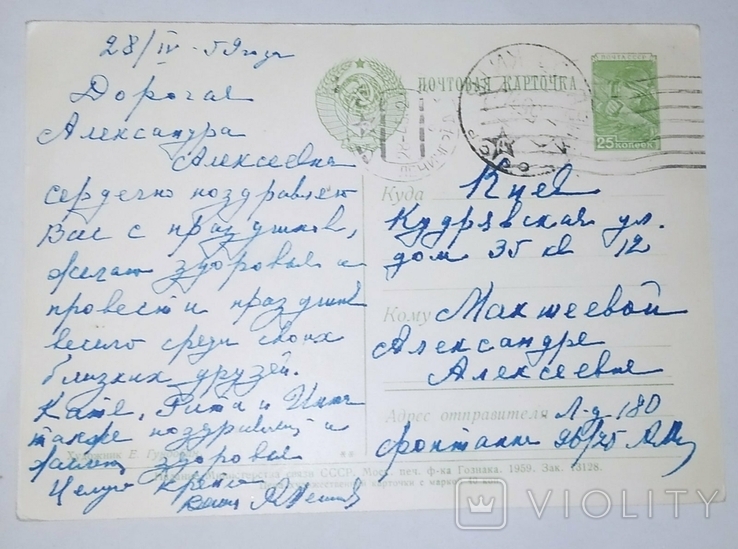 28/IV-59 года
Дорогая
Александра
Алексеевна
сердечно поздравляем
Вас с праздником,
желаю здоровья и
провести праздник
весело среди своих
близких друзей.
Катя, Рита и Инна
также поздравляют и
желают здоровья
Целую крепко
ПОЧТОВАЯ КАРТОЧКА
ПОЧТА СССР
25 КОПЕЕК
Куда Киев
Кудрявская ул.
дом 35 кв 12
Кому Макшеевой
Александре
Алексеевне
Адрес отправителя Л-д 180
Фонтанка
Художник Е.
Министерства связи СССР. Моск. печ. ф-ка Гознака. 1959. Зак. 13128.
карточки с маркой
VIOLITY